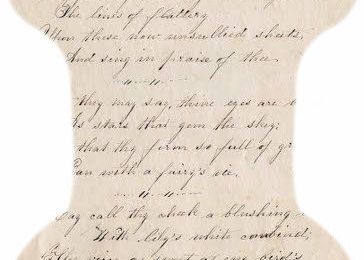 The lines of flattery
Upon these now unsullied sheets,
And sing in praise of thee.
they may say, thine eyes are
As stars that gem the sky;
that thy form so full of gr
Can with a fairy's vie.
Say call thy cheek a blushing
With lily's white combined;
voice as sweet as any bird's